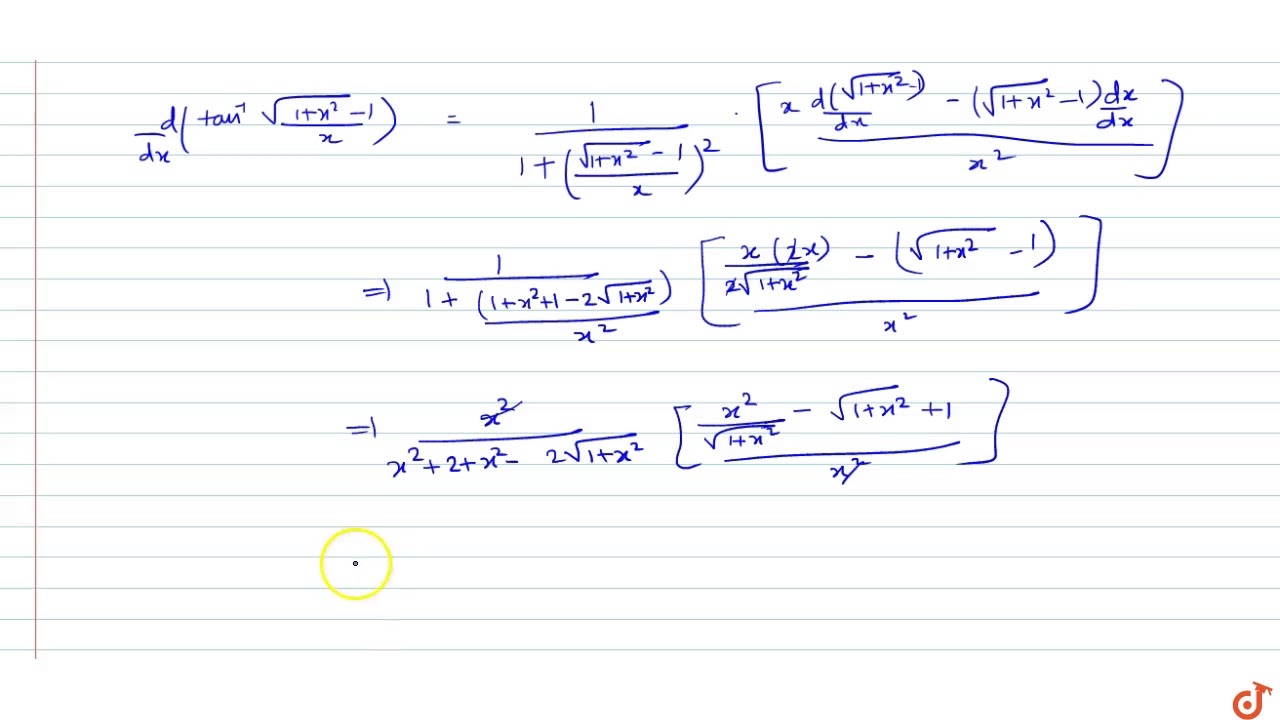 d/dx( tan⁻¹ (√(1+x²) -1)/x ) = 1/(1+((√(1+x²) - 1)/x)²) · [ (x d(√(1+x²) -1)/dx - (√(1+x²) -1) dx/dx)/x² ]
⇒ 1/(1+ (1+x²+1-2√(1+x²))/x²) [ (x (2x)/(2√(1+x²)) - (√(1+x²) -1))/x² ]
⇒ x²/(x²+2+x²- 2√(1+x²)) [ (x²/√(1+x²) - √(1+x²) +1)/x² ]